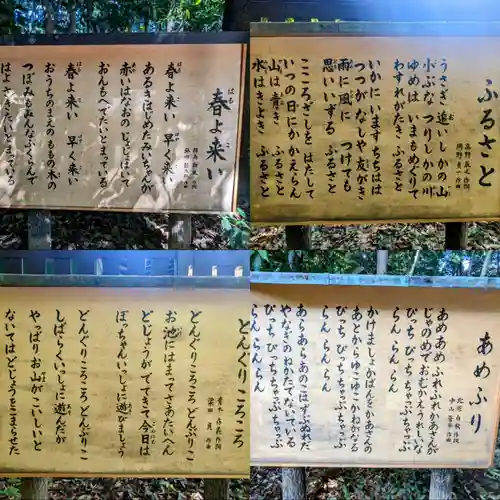 春よ来い
相馬御風 作詞
弘田龍太郎 作曲
春よ来い 早く来い
あるきはじめたみいちゃんが
赤いはなおの じょじょはいて
おんもへでたいと まっている
春よ来い 早く来い
おうちのまえの ももの木の
つぼみもみんな ふくらんで
はよさきたいと まっている
ふるさと
高野辰之 作詞
岡野貞一 作曲
うさぎ追いしかの山
小ぶな つりしかの川
ゆめは いまもめぐりて
わすれがたき ふるさと
いかに いますちちはは
つつがなしや 友がき
雨に風に つけても
思いいずる ふるさと
こころざしを はたして
いつの日にか かえらん
山は青き ふるさと
水はきよき ふるさと
どんぐりころころ
青木存義 作詞
梁田貞 作曲
どんぐりころころ どんぶりこ
お池にはまって さあたいへん
どじょうが でてきて 今日は
ぼっちゃんいっしょに 遊びましょう
どんぐりころころ どんぶりこ
しばらくいっしょに 遊んだが
やっぱりお山が こいしいと
ないては どじょうを こまらせた
あめふり
北原白秋 作詞
中山晋平 作曲
あめあめふれふれ かあさんが
じゃのめでおむかえ うれしいな
ぴちぴち ちゃぷちゃぷ
らん らん らん
かけましょかばんを かあさんの
あとからゆこゆこ かねがなる
ぴちぴち ちゃぷちゃぷ
らん らん らん
あらあらあのこは ずぶぬれだ
やなぎのねかたで ないている
ぴちぴち ちゃぷちゃぷ
らん らん らん